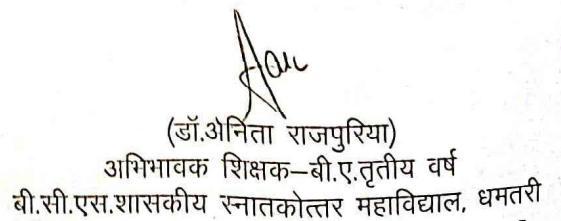 (डॉ.अेनिता राजपुरिया)
अभिभावक शिक्षक–बी.ए.तृतीय वर्ष
बी.सी.एस.शासकीय स्नातकोत्तर महाविद्याल, धमतरी